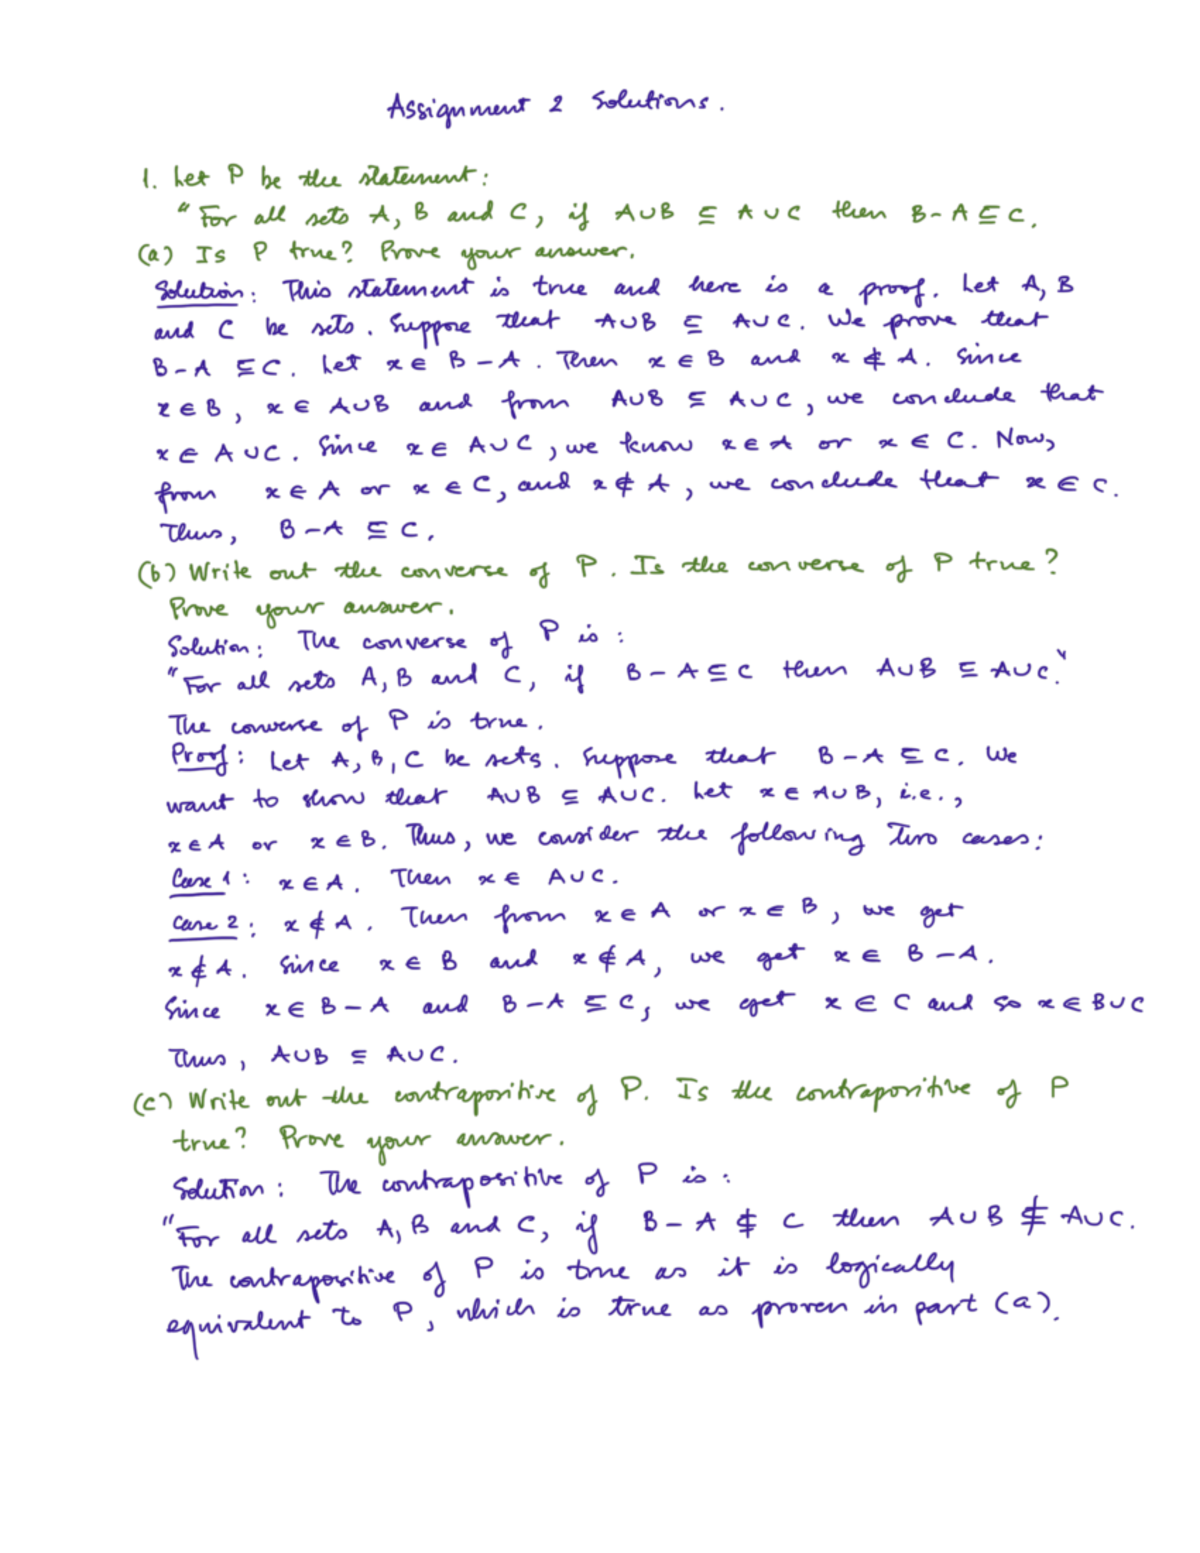 Assignment 2 Solutions.
1. Let P be the statement:
"For all sets A, B and C, if A∪B ⊆ A∪C then B-A ⊆ C.
(a) Is P true? Prove your answer.
Solution: This statement is true and here is a proof. Let A, B
and C be sets. Suppose that A∪B ⊆ A∪C. We prove that
B-A ⊆ C. Let x ∈ B-A. Then x ∈ B and x ∉ A. Since
x ∈ B, x ∈ A∪B and from A∪B ⊆ A∪C, we conclude that
x ∈ A∪C. Since x ∈ A∪C, we know x ∈ A or x ∈ C. Now,
from x ∈ A or x ∈ C, and x ∉ A, we conclude that x ∈ C.
Thus, B-A ⊆ C.
(b) Write out the converse of P. Is the converse of P true?
Prove your answer.
Solution: The converse of P is:
"For all sets A, B and C, if B-A ⊆ C then A∪B ⊆ A∪C."
The converse of P is true.
Proof: Let A, B, C be sets. Suppose that B-A ⊆ C. We
want to show that A∪B ⊆ A∪C. Let x ∈ A∪B, i.e.,
x ∈ A or x ∈ B. Thus, we consider the following two cases:
Case 1: x ∈ A. Then x ∈ A∪C.
Case 2: x ∉ A. Then from x ∈ A or x ∈ B, we get
x ∉ A. Since x ∈ B and x ∉ A, we get x ∈ B-A.
Since x ∈ B-A and B-A ⊆ C, we get x ∈ C and so x ∈ B∪C
Thus, A∪B ⊆ A∪C.
(c) Write out the contrapositive of P. Is the contrapositive of P
true? Prove your answer.
Solution: The contrapositive of P is:
"For all sets A, B and C, if B-A ⊈ C then A∪B ⊈ A∪C.
The contrapositive of P is true as it is logically
equivalent to P, which is true as proven in part (a).